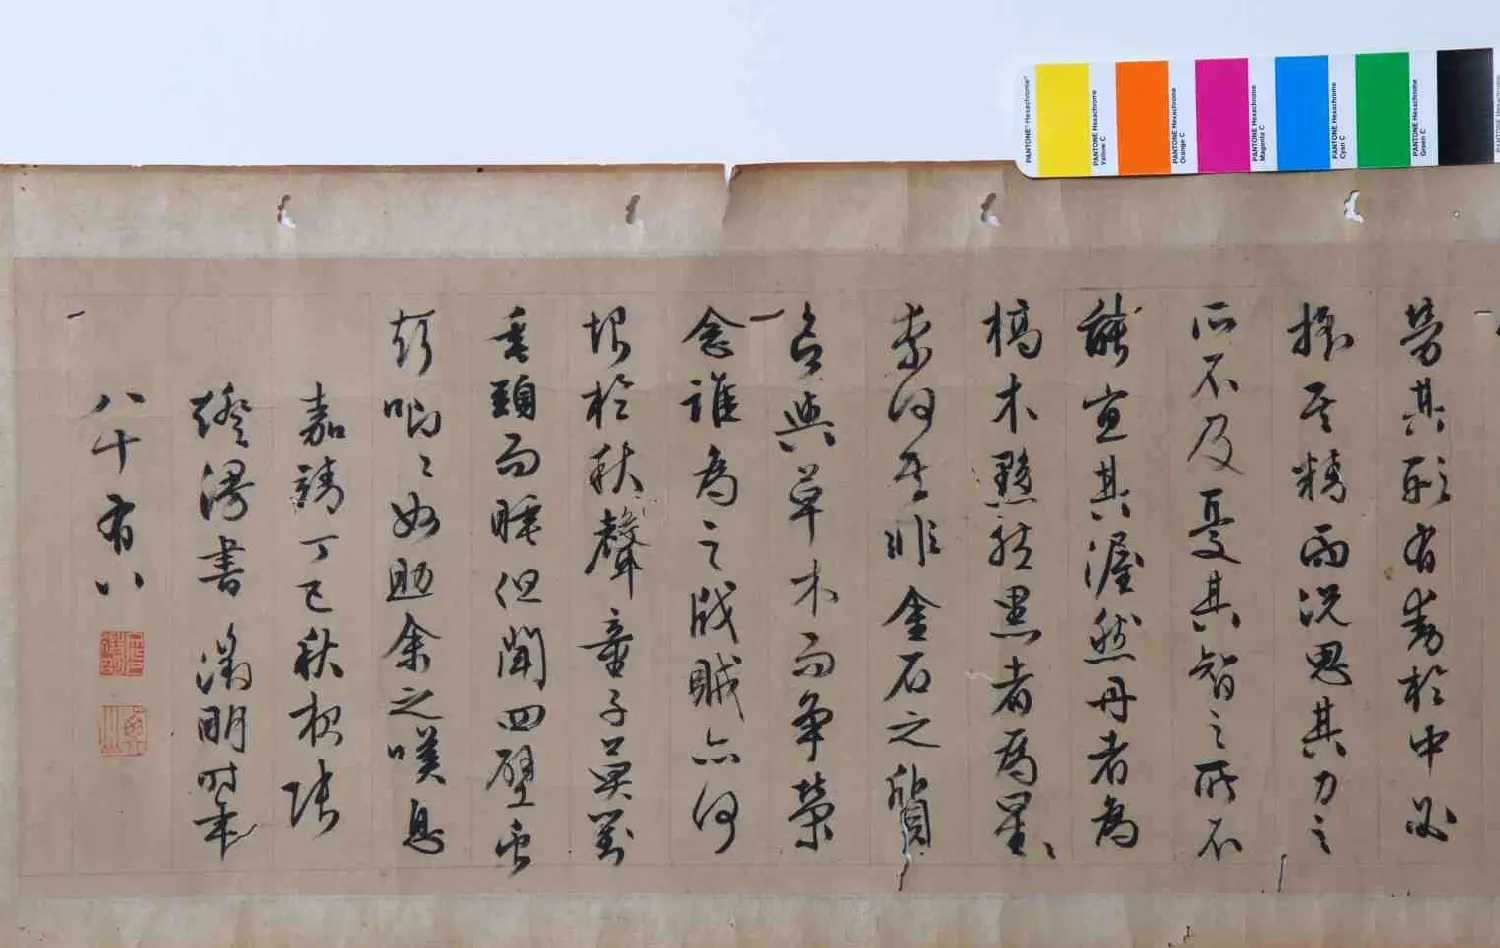 勞其形有動於中必
搖其精而況思其力之
所不及憂其智之所不
能宜其渥然丹者為
槁木黟然黑者為星〻
奈何非金石之質
與草木而争榮
念誰為之戕賊亦何
恨於秋聲童子莫對
垂頭而睡但聞四壁虫
唧〻如助余之嘆息
嘉靖丁巳秋張
燈漫書徵明時年
八十有八
PANTONE® Hexachrome™
PANTONE Hexachrome
Yellow C
PANTONE Hexachrome
Orange C
PANTONE Hexachrome
Magenta C
PANTONE Hexachrome
Cyan C
PANTONE Hexachrome
Green C